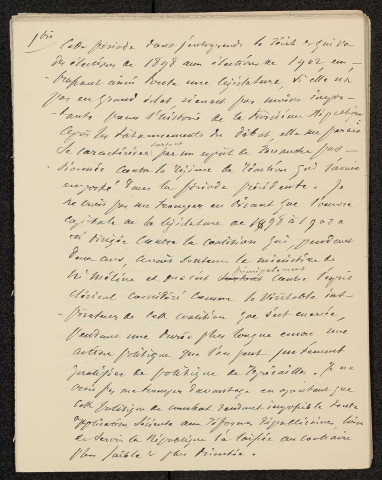 1 bis
Cette période dont j'entreprends le récit et qui va
des élections de 1898 aux élections de 1902 em-
brassant ainsi toute une législature, si elle n'a
pas un grand éclat n'en est pas moins impor-
tante pour l'histoire de la troisième République
Après les tâtonnements du début, elle me paraît
se caractériser surtout par un esprit de revanche pas-
sionnée contre le régime de réaction qui l'avait
emporté dans la période précédente. Je
ne crois pas me tromper en disant que l'œuvre
capitale de la législature de 1898 à 1902 a
été dirigée contre la coalition qui, pendant
deux ans, avait soutenu le ministère de
Mr Méline et que c'est principalement contre l'esprit
clérical considéré comme le véritable ins-
pirateur de cette coalition que s'est exercée,
pendant une durée plus longue encore une
action politique que l'on peut justement
qualifier de politique de représailles. Je ne
crois pas me tromper davantage en ajoutant que
cette politique de combat rendant impossible toute
application sérieuse aux réformes républicaines, loin
de servir la République l'a laissée au contraire
plus faible & plus divisée.